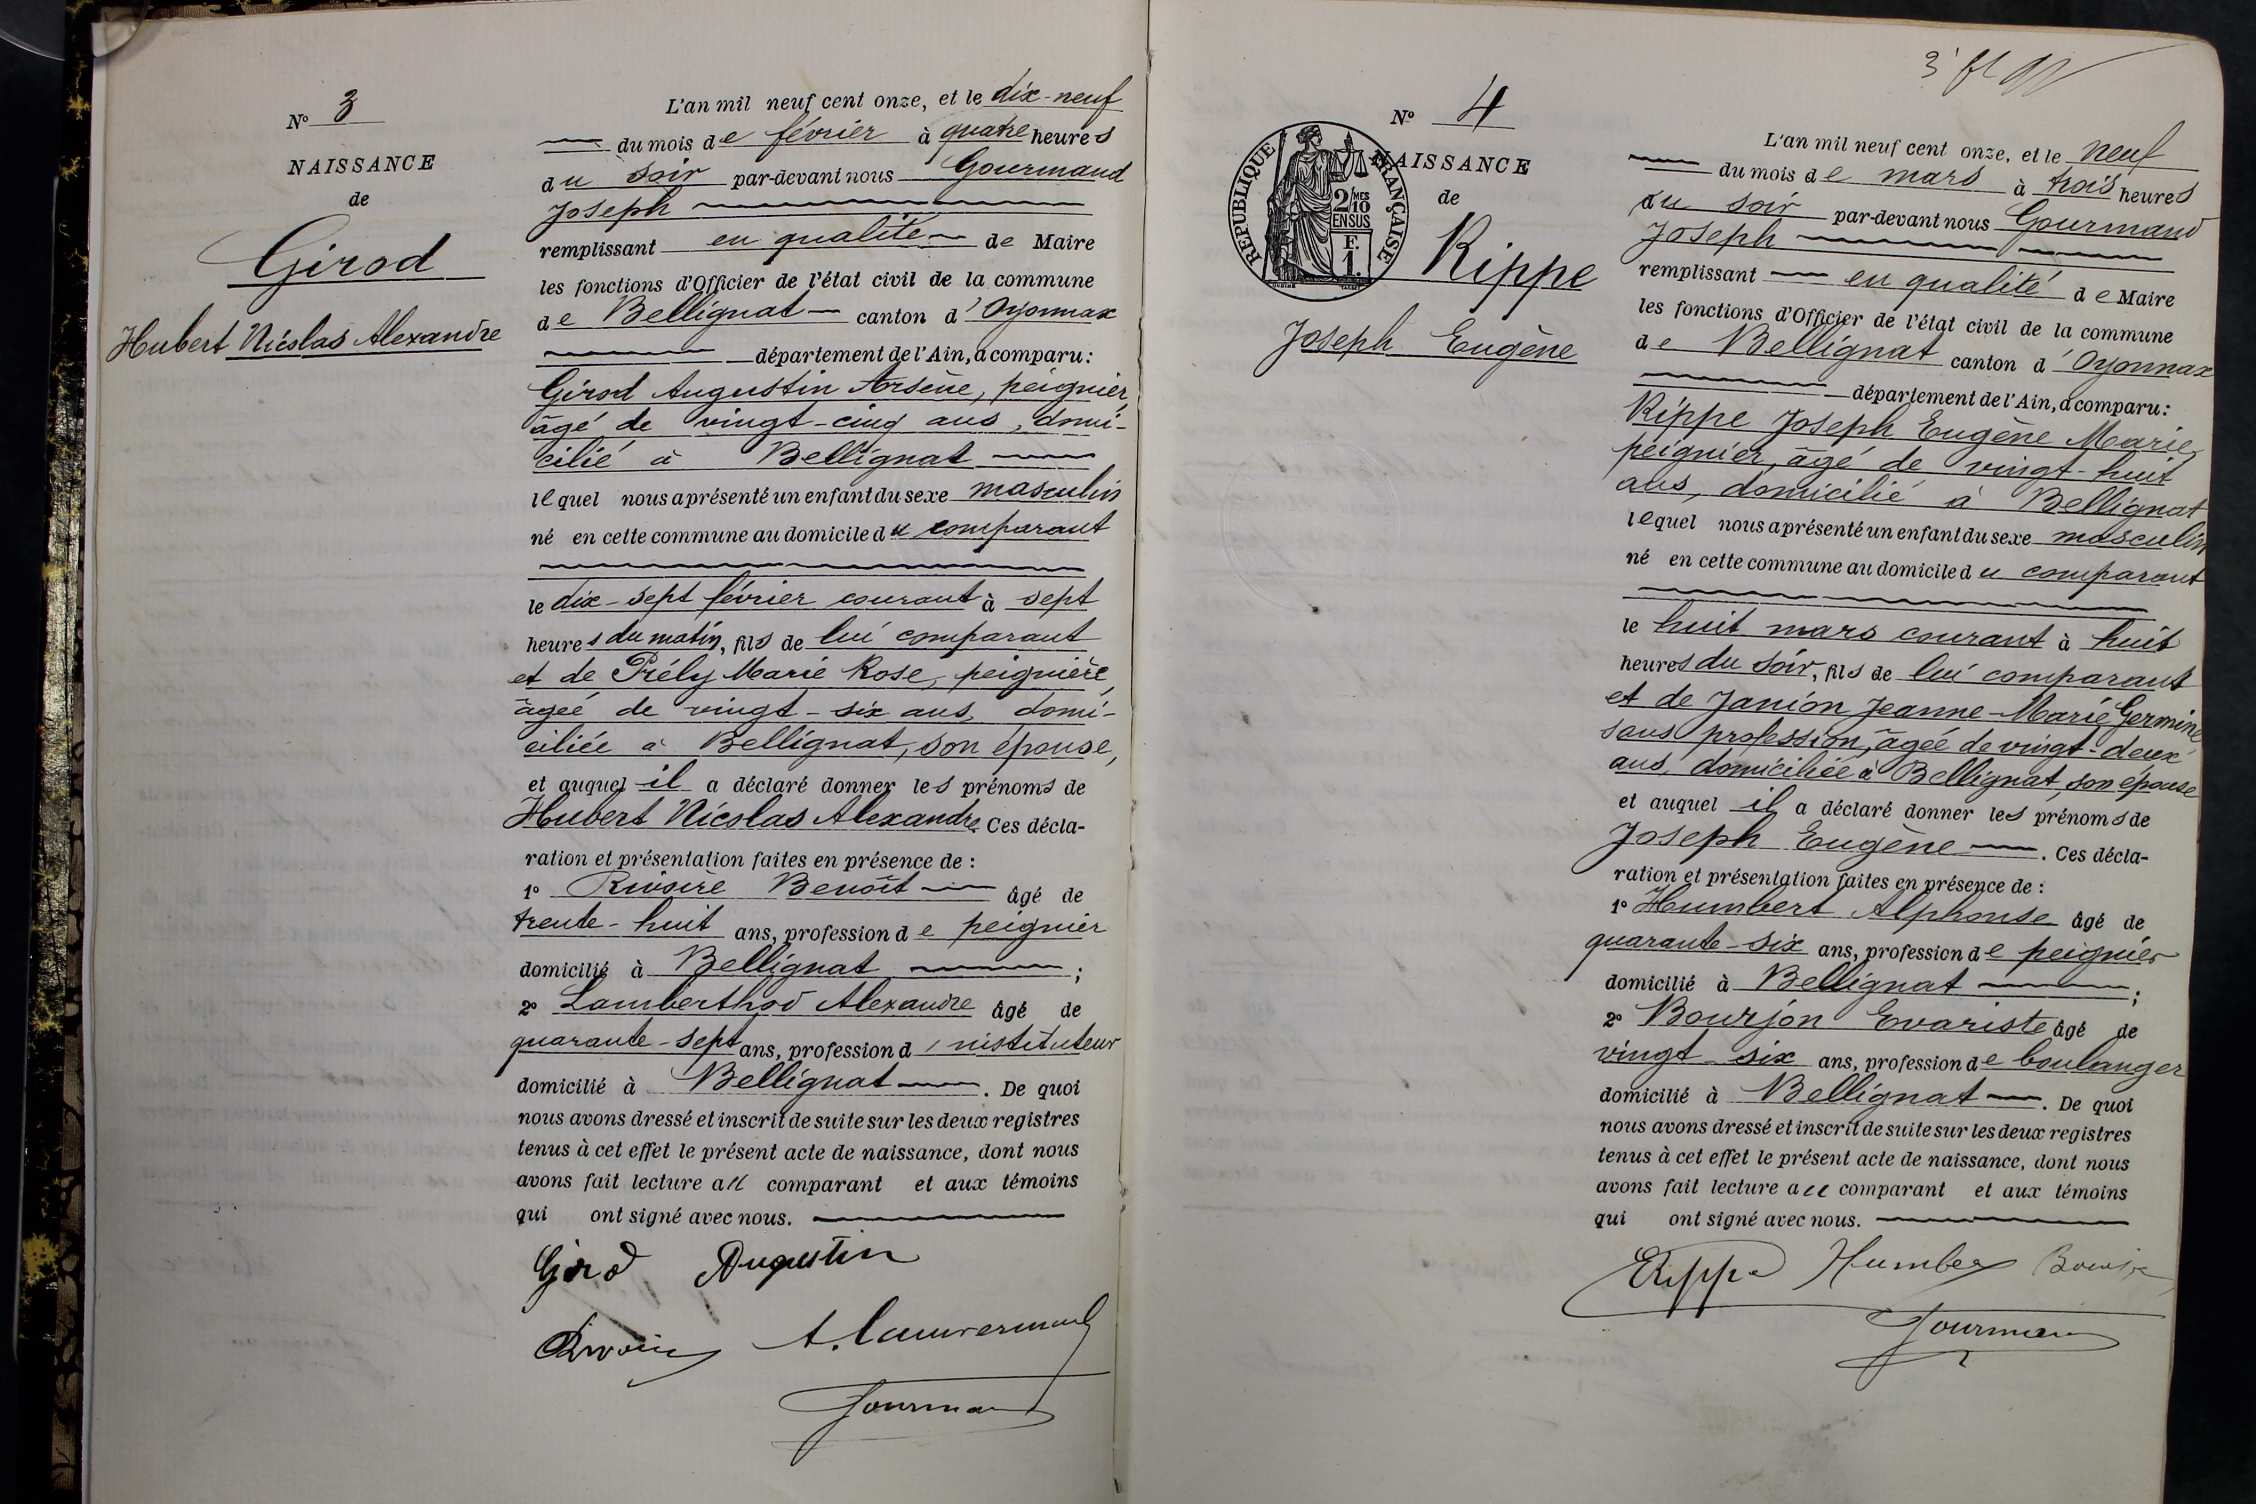 N° 3
NAISSANCE
de
Girod
Hubert Nicolas Alexandre
L'an mil neuf cent onze, et le dix-neuf
du mois de février à quatre heures
du soir par-devant nous Gourmand
Joseph
remplissant en qualité de Maire
les fonctions d'Officier de l'état civil de la commune
de Bellignat canton d'Oyonnax
département de l'Ain, a comparu:
Girod Augustin Arsène, peignier,
âgé de vingt-cinq ans, domi-
cilié à Bellignat
lequel nous a présenté un enfant du sexe masculin
né en cette commune au domicile du comparant
le dix-sept février courant à sept
heures du matin, fils de lui comparant
et de Prély Marie Rose, peignière,
âgée de vingt-six ans, domi-
ciliée à Bellignat, son épouse,
et auquel il a déclaré donner les prénoms de
Hubert Nicolas Alexandre. Ces décla-
ration et présentation faites en présence de :
1° Benoît âgé de
trente-huit ans, profession de peignier
domicilié à Bellignat ;
2° Alexandre âgé de
quarante-sept ans, profession d'instituteur
domicilié à Bellignat . De quoi
nous avons dressé et inscrit de suite sur les deux registres
tenus à cet effet le présent acte de naissance, dont nous
avons fait lecture au comparant et aux témoins
qui ont signé avec nous.
Girod Augustin
Gourmand
N° 4
REPUBLIQUE FRANÇAISE
2/10 MES
EN SUS
F.
1.
NAISSANCE
de
Rippe
Joseph Eugène
L'an mil neuf cent onze, et le neuf
du mois de mars à trois heures
du soir par-devant nous Gourmand
Joseph
remplissant en qualité de Maire
les fonctions d'Officier de l'état civil de la commune
de Bellignat canton d'Oyonnax
département de l'Ain, a comparu:
Rippe Joseph Eugène Marie,
peignier, âgé de vingt-huit
ans, domicilié à Bellignat
lequel nous a présenté un enfant du sexe masculin
né en cette commune au domicile du comparant
le huit mars courant à huit
heures du soir, fils de lui comparant
et de Janion Jeanne-Marie Germine
sans profession, âgée de vingt-deux
ans, domiciliée à Bellignat, son épouse
et auquel il a déclaré donner les prénoms de
Joseph Eugène . Ces décla-
ration et présentation faites en présence de :
1° Humbert Alphonse âgé de
quarante-six ans, profession de peignier
domicilié à Bellignat ;
2° Bourjon Evariste âgé de
vingt-six ans, profession de boulanger
domicilié à Bellignat . De quoi
nous avons dressé et inscrit de suite sur les deux registres
tenus à cet effet le présent acte de naissance, dont nous
avons fait lecture au comparant et aux témoins
qui ont signé avec nous.
Rippe Humbert
Gourmand